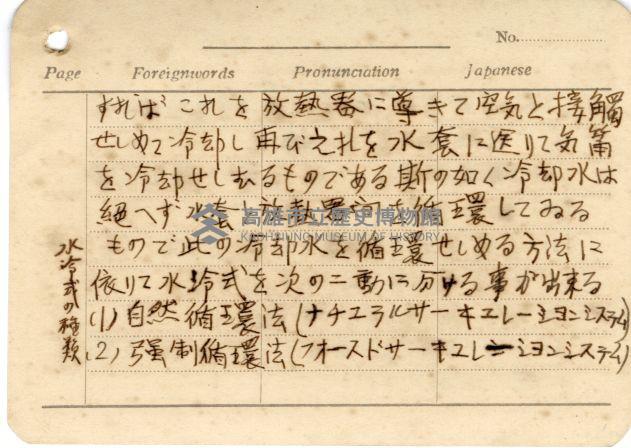 No.
Page Foreignwords Pronunciation Japanese
すればこれを放熱器に導きて空気と接觸
せしめて冷却し再び之れを水套に送りて気筩
を冷却せしむるものである斯の如く冷却水は
絶へず水套と放熱器間を循環してゐる
もので此の冷却水を循環せしめる方法に
依りて水冷式を次の二動に分ける事が出来る
(1) 自然循環法(ナチユラルサーキユレーシヨンシステム)
(2) 强制循環法(フオースドサーキユレーシヨンシステム)
水冷式の種類
高雄市立歷史博物館
KAOHSIUNG MUSEUM OF HISTORY